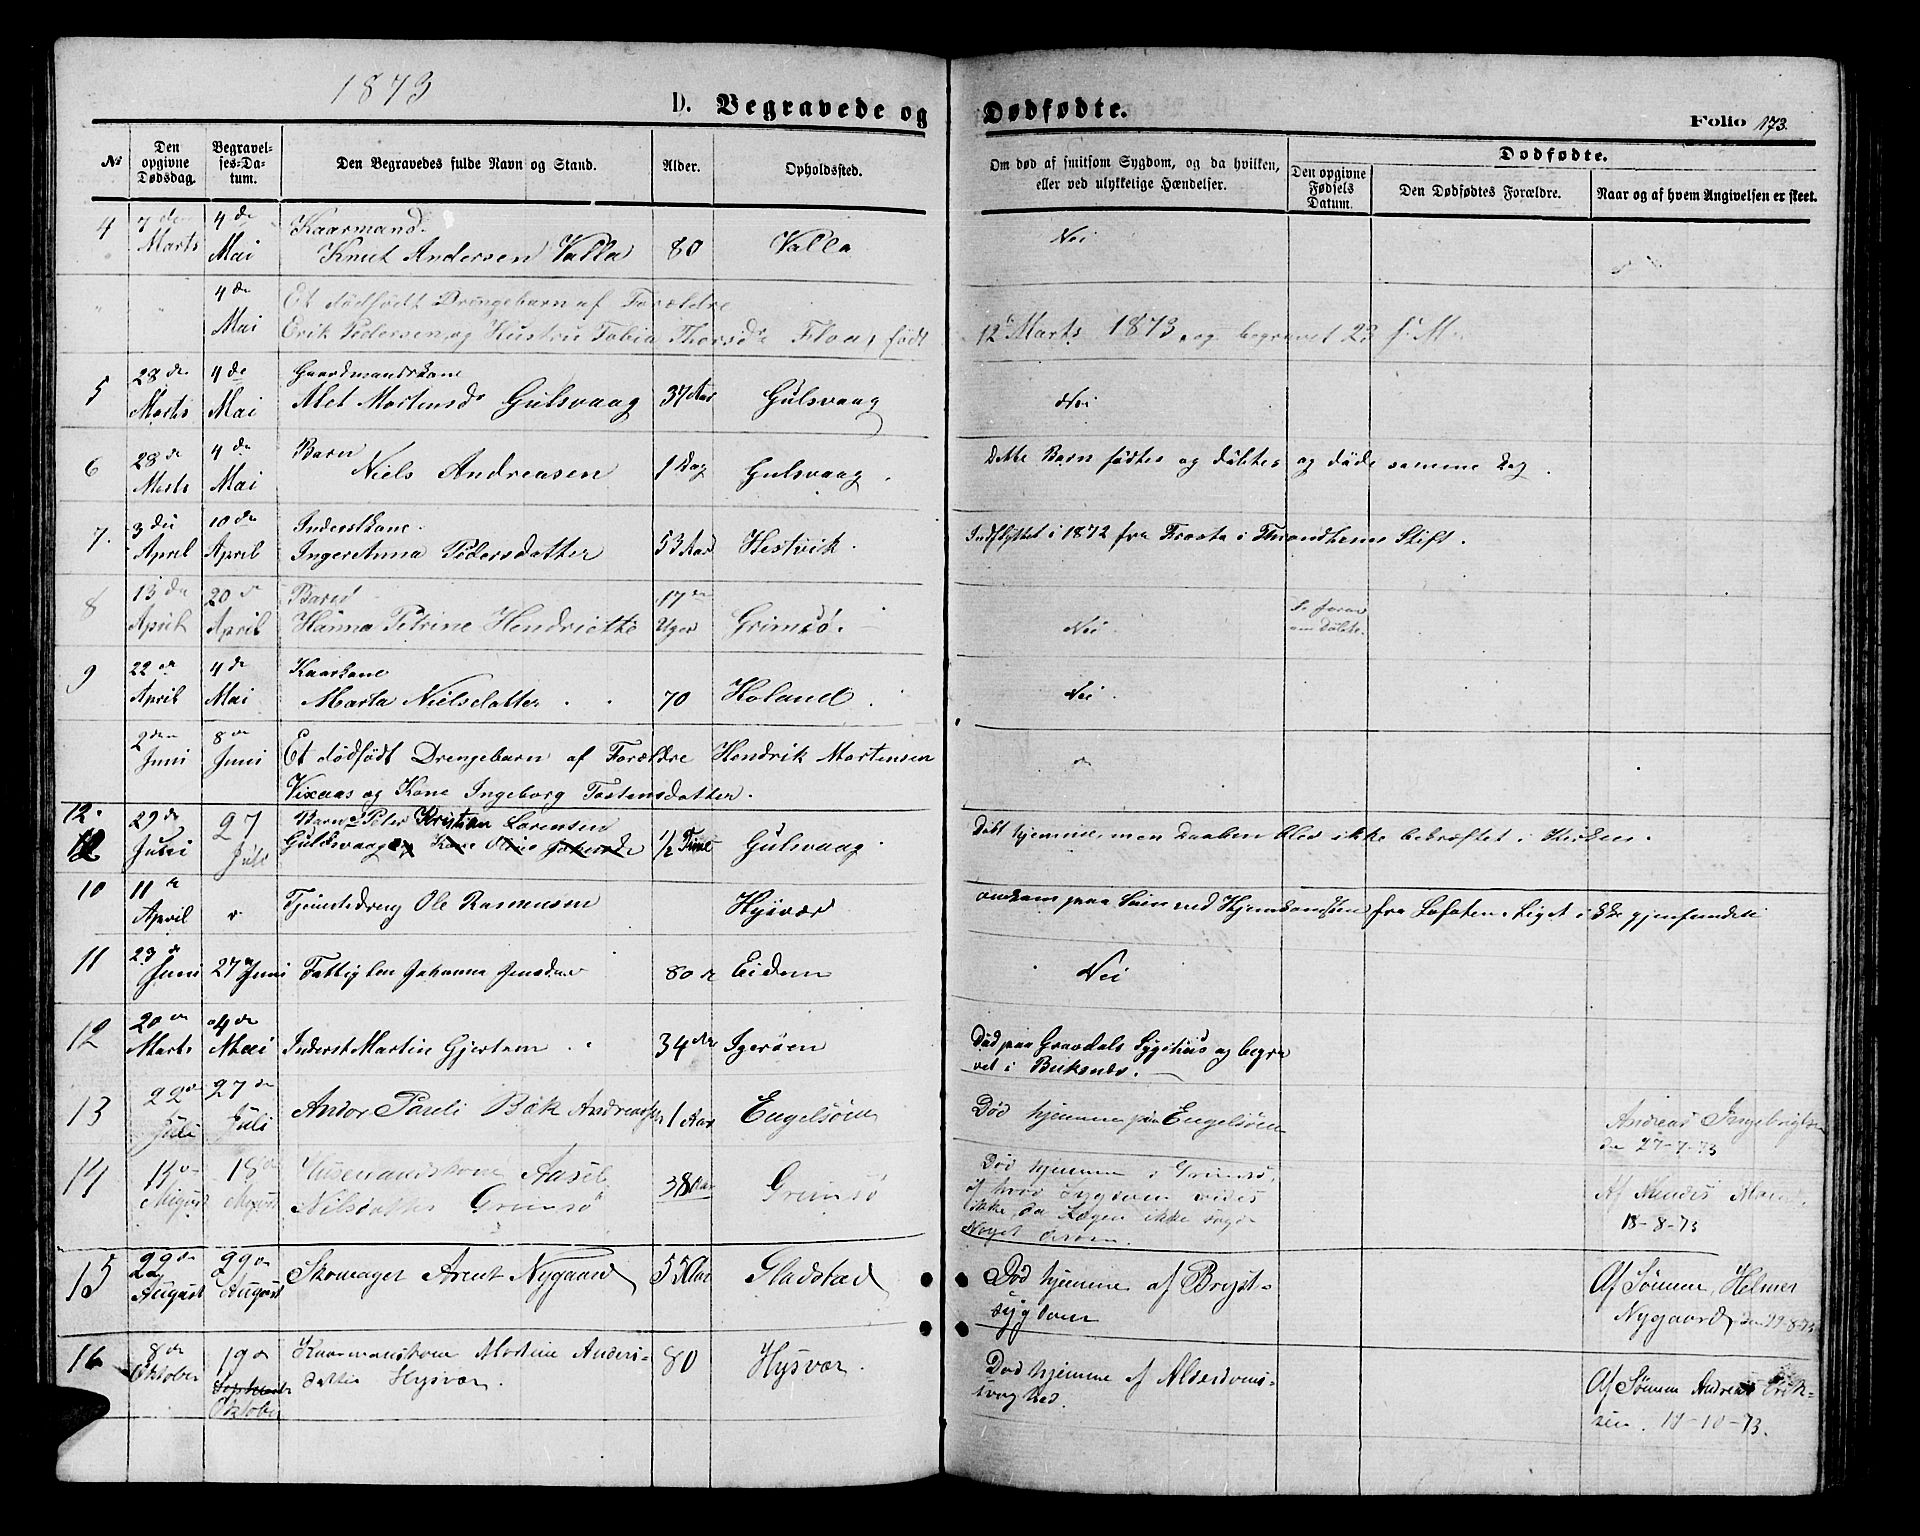 1873
D. Begravede og Dødfødte.
Folio 173.
№
Den opgivne Dødsdag.
Begravelses-Datum.
Den Begravedes fulde Navn og Stand.
Alder.
Opholdssted.
Om død af smitsom Sygdom, og da hvilken,
eller ved ulykkelige Hændelser.
Dødfødte.
Den opgivne Fødsels Datum.
Den Dødfødtes Forældre.
Naar og af hvem Angivelsen er skeet.
4 7de Marts 4de Mai Kaarmand
Knut Andersen Valla 80 Valla Nei
" " 4de Mai Et dödfödt Drengebarn af Forældre
Erik Pedersen og Hustru Tobia Thorsd. Floa, födt 12te Marts 1873, og begravet 23 s. M.
5 28de Marts 4de Mai Gaardmandskone
Alet Mortensd. Gulsvaag 37 Aar Gulsvaag Nei
6 28de Marts 4de Mai Barn
Niels Andreasen 1 Dag Gulsvaag. Dette Barn födtes og döbtes og döde samme Dag.
7. 3die April 10de April Inderstkone.
Inger Anna Pedersdatter 53 Aar Hestvik. Indflyttet i 1872 fra Frosta i Throndhjems Stift.
8 13de April 20de April Barn
Hanna Petrine Hendriette 17 Uger Grimsö. Nei
9 22de April 4de Mai Kaarkone
Marta Nielsdatter 70 Holand. Nei
2den Juni 8de Juni Et dödfödt Drengebarn af Forældre Hendrik Mortensen
Vixaas og Kone Ingeborg Tostensdatter.
12. 29de Juni 27 Juli Barn Peter Kristian Lorensen
Guldsvaag og Kone Oline 1/2 Time Gulsvaag. Döbt hjemme, men Daaben blev ikke bekræftet i Kirken.
10 11te April " Tjenestedreng Ole Rasmussen Hysvær omkom paa Söen ved Hjemkomsten fra Lofoten. Liget ikke gjenfundet
11 23de Juni 27 Juni Fattiglem Johanna Jensd. 80 Eidem Nei
12 20de Marts 4de Mai Inderst Martin Gjertsen 34 Igerøen Död paa Gravdals Sygehus og begra
vet i Buksnes.
13 22de Juli 27de Juli Andor Pareli Bök Andreassen 1 Aar Engelsöen Död hjemme paa Engelsöen Andreas Ingebrigtsen
den 27-7-73
14 18de August Husmandskone Aasel
Nilsdatter Grimsö 38 Aar Grimsö Död hjemme i Grimsö,
af hvad Sygdom vides
ikke, da Lægen ikke sagde
Noget derom. Af
18-8-73
15 22de August 29de August Skomager Arent Nygaard 55 Aar Gladstad Död hjemme af Bryst-
sygdom Af Sönnen, Helmer
Nygaard, den 29-8-73
16 8de Oktober 19de September Oktober Kaarmanskone Martine Anders-
datter Hysvær. 80 Hysvær. Död hjemme af Alderdoms-
svaghed. Af Sönnen Andreas Erik-
sen. 19-10-73.